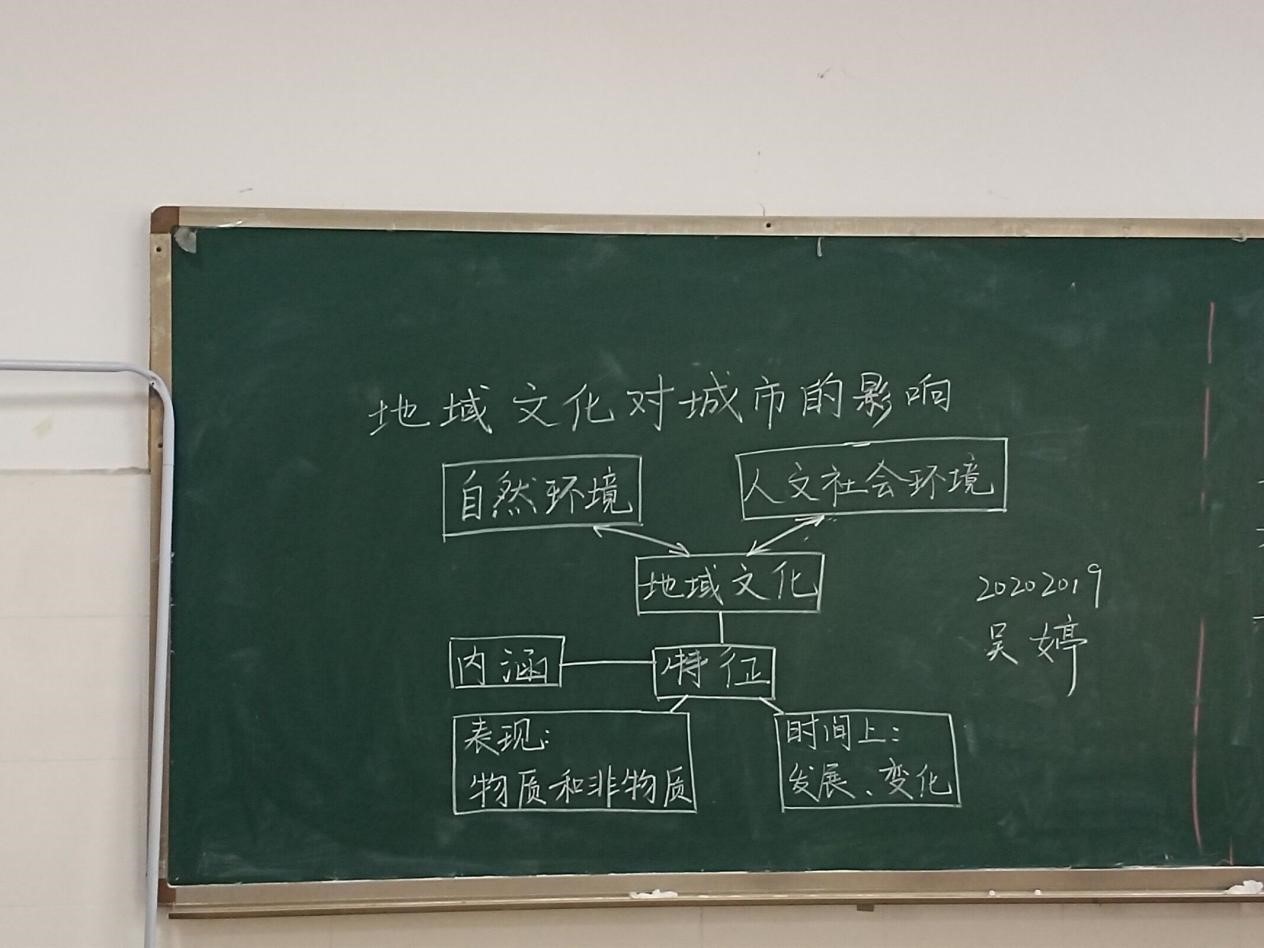 地域文化对城市的影响
自然环境
人文社会环境
地域文化
20202019
吴婷
内涵
特征
表现:
物质和非物质
时间上:
发展、变化